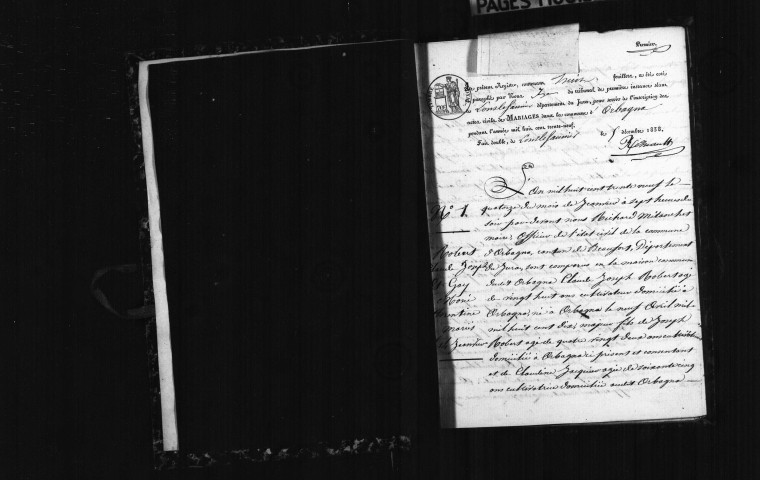 PAGES
Premier
Le présent Registre, contenant trois feuillets, a été coté
et paraphé par Nous, du tribunal de première instance séant
à Lonslesaunier département du Jura, pour servir à l'inscription des
actes civils des MARIAGES dans la commune d'Orbagna
pendant l'année mil huit cent trente-neuf.
Fait double, à Lonslesaunier le 5 décembre 1838.
L'an mil huit cent trente neuf le
N° 1. quatorze du mois de Janvier à sept heures du
soir par devant nous Richard Milanchet
maire, Officier de l'état civil de la commune
Robert d'Orbagna, canton de Beaufort, Département
Joseph du Jura, sont comparus en la maison commune
& Gay dudit Orbagna Claude Joseph Robert agé
de vingt huit ans cultivateur domicilié à
Orbagna, né à Orbagna le neuf Avril mil
mariés mil huit cent dix, majeur fils de Joseph
Janvier Robert agé de quatre vingt deux ans cultivateur
domicilié à Orbagna ci présent et consentant
et de Claudine Jacquier agée de soixante cinq
ans cultivatrice domiciliée audit Orbagna